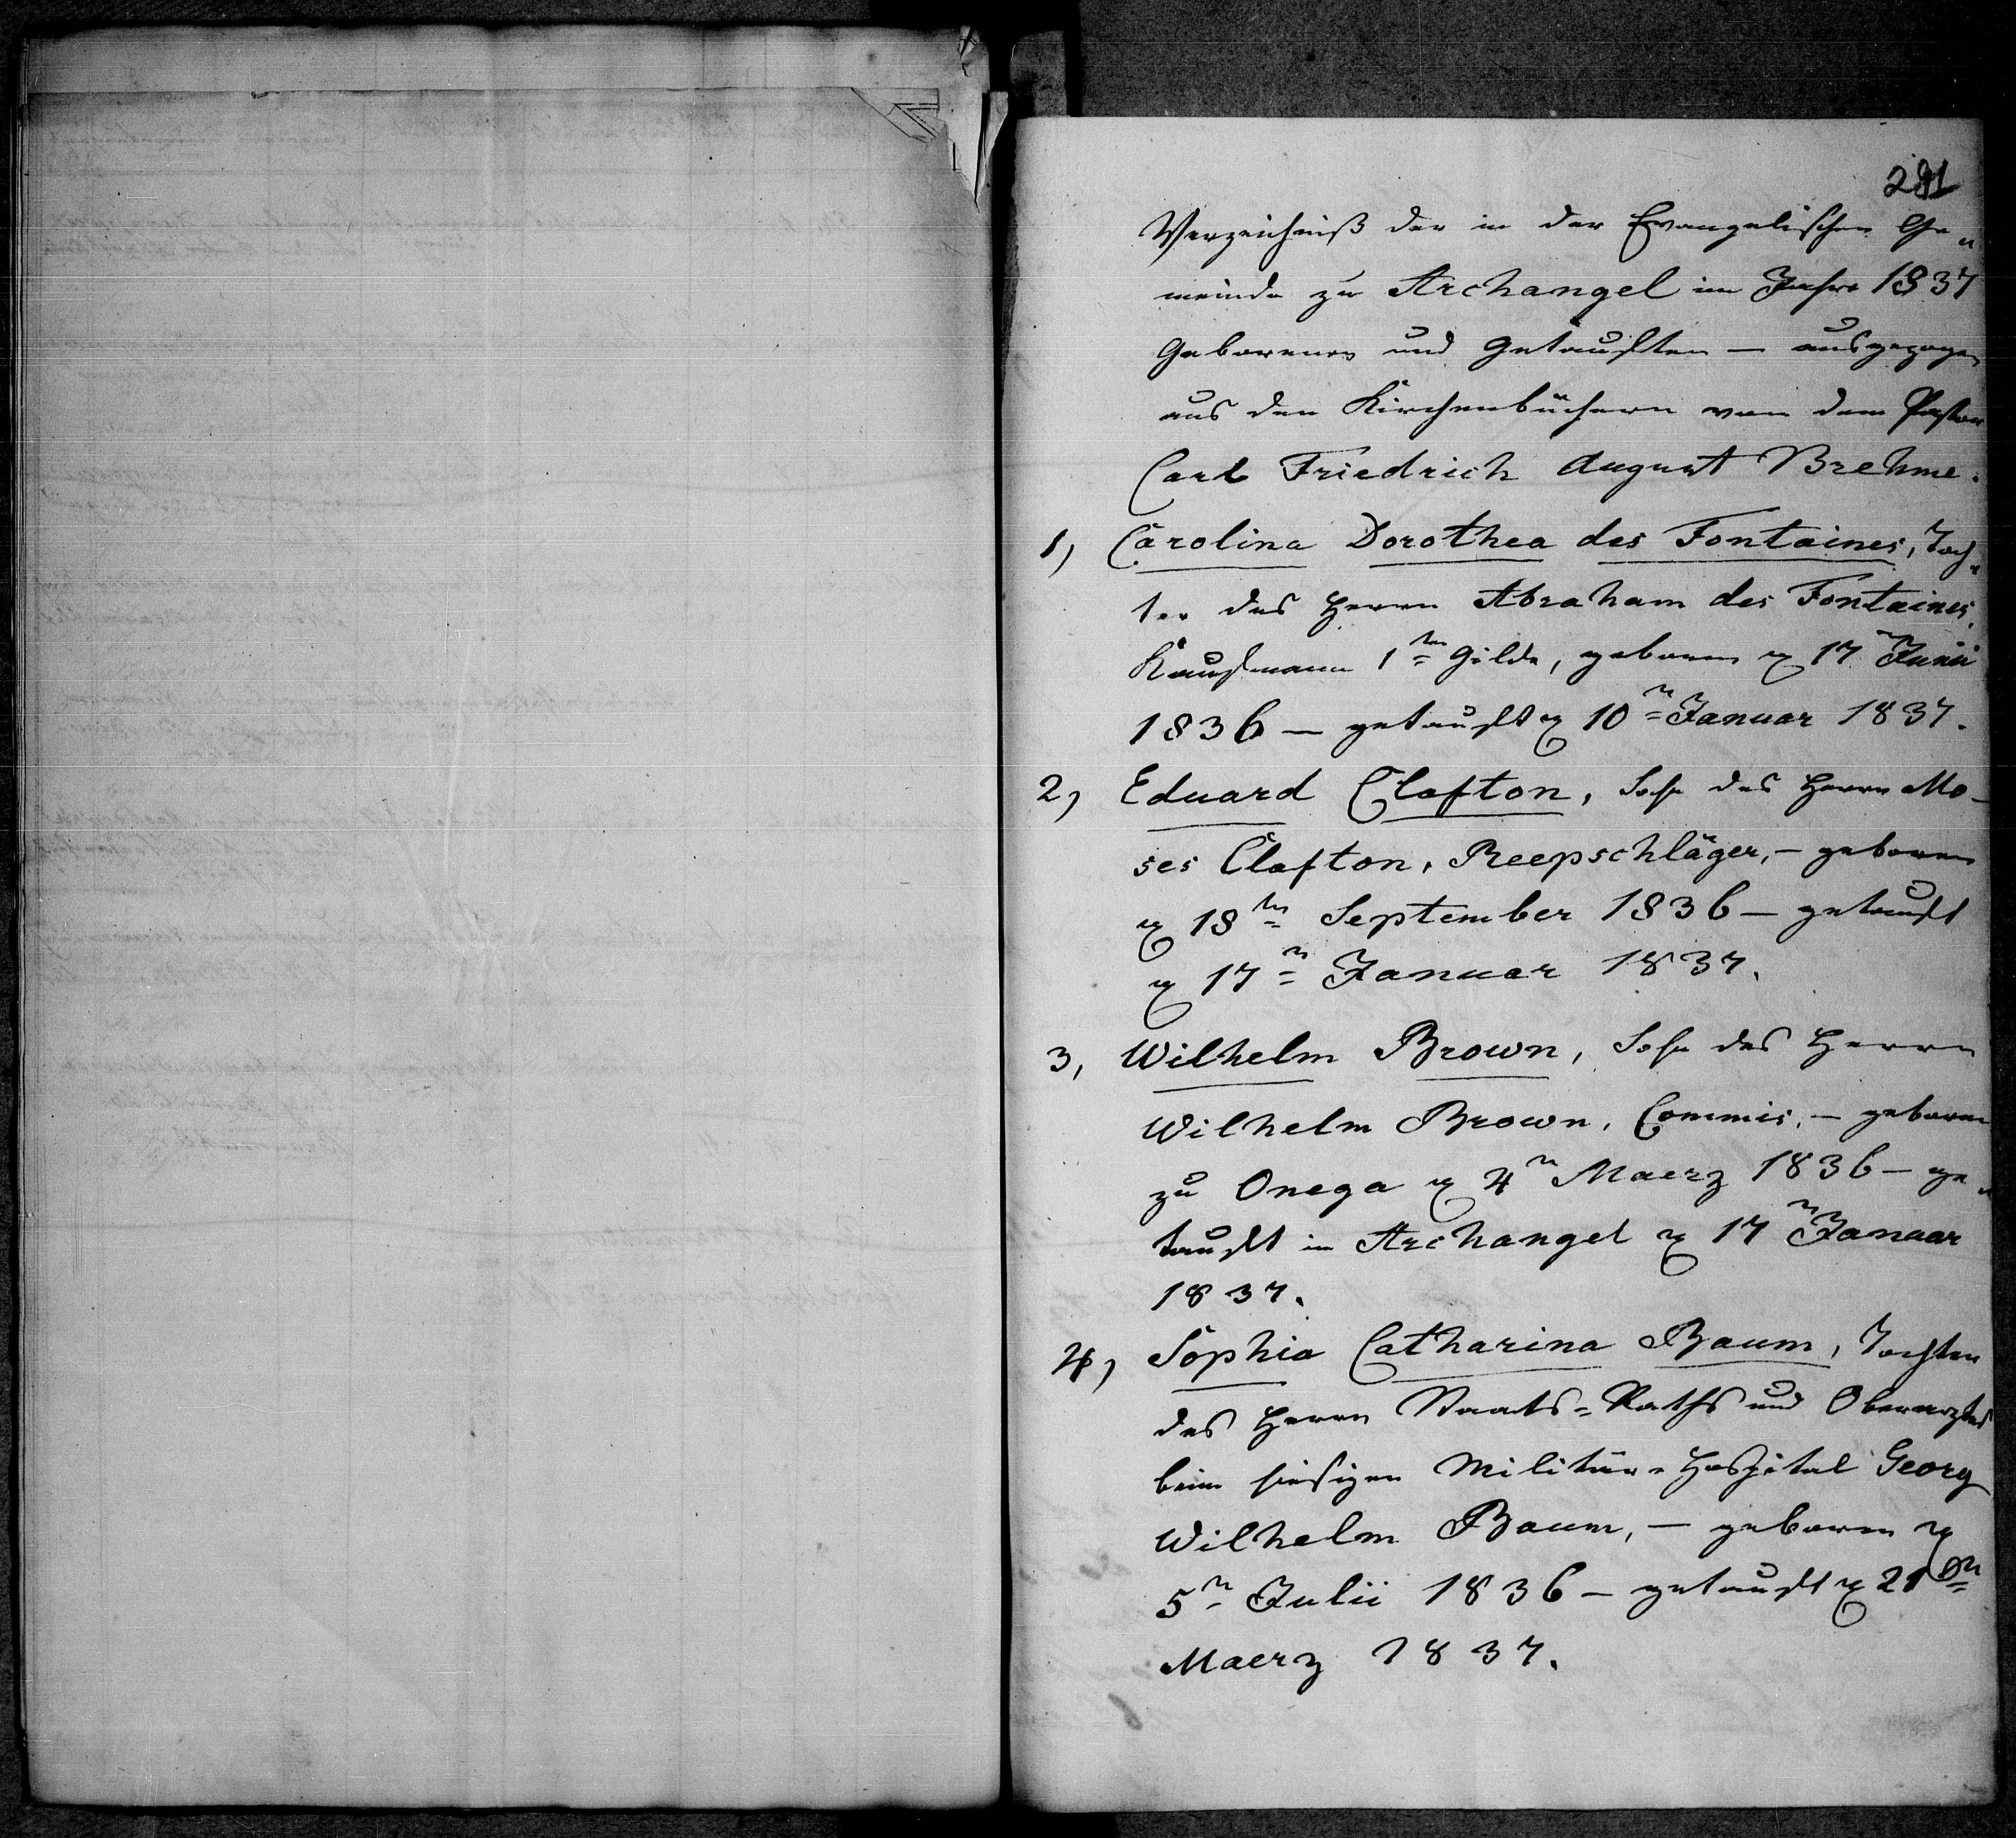 281
Verzeichniß der in der Evangelischen Ge„
meinde zu Archangel im Jahre 1837
Geborenen und Getauften — ausgezogen
aus den Kirchenbüchern von dem Pastor
Carl Friedrich August Brehme.
1, Carolina Dorothea des Fontaines, Toch„
ter des Herrn Abraham des Fontaines,
Kaufmann 1ter Gilde, geboren d 17n Junii
1836 — getauft d 10n Januar 1837.
2, Eduard Clafton, Sohn des Herrn Mo-
ses Clafton, Reepschläger, — geboren
d 18ten September 1836 — getauft
d 17n Januar 1837.
3, Wilhelm Brown, Sohn des Herrn
Wilhelm Brown, Commis, — geboren
zu Onega d 4n Maerz 1836 — ge„
tauft in Archangel d 17n Januar
1837.
4, Sophia Catharina Baum, Tochter
des Herrn Staats-Raths und Oberarztes
beim hiesigen Militär-Hospital Georg
Wilhelm Baum, — geboren d
5n Julii 1836 — getauft d 21n
Maerz 1837.